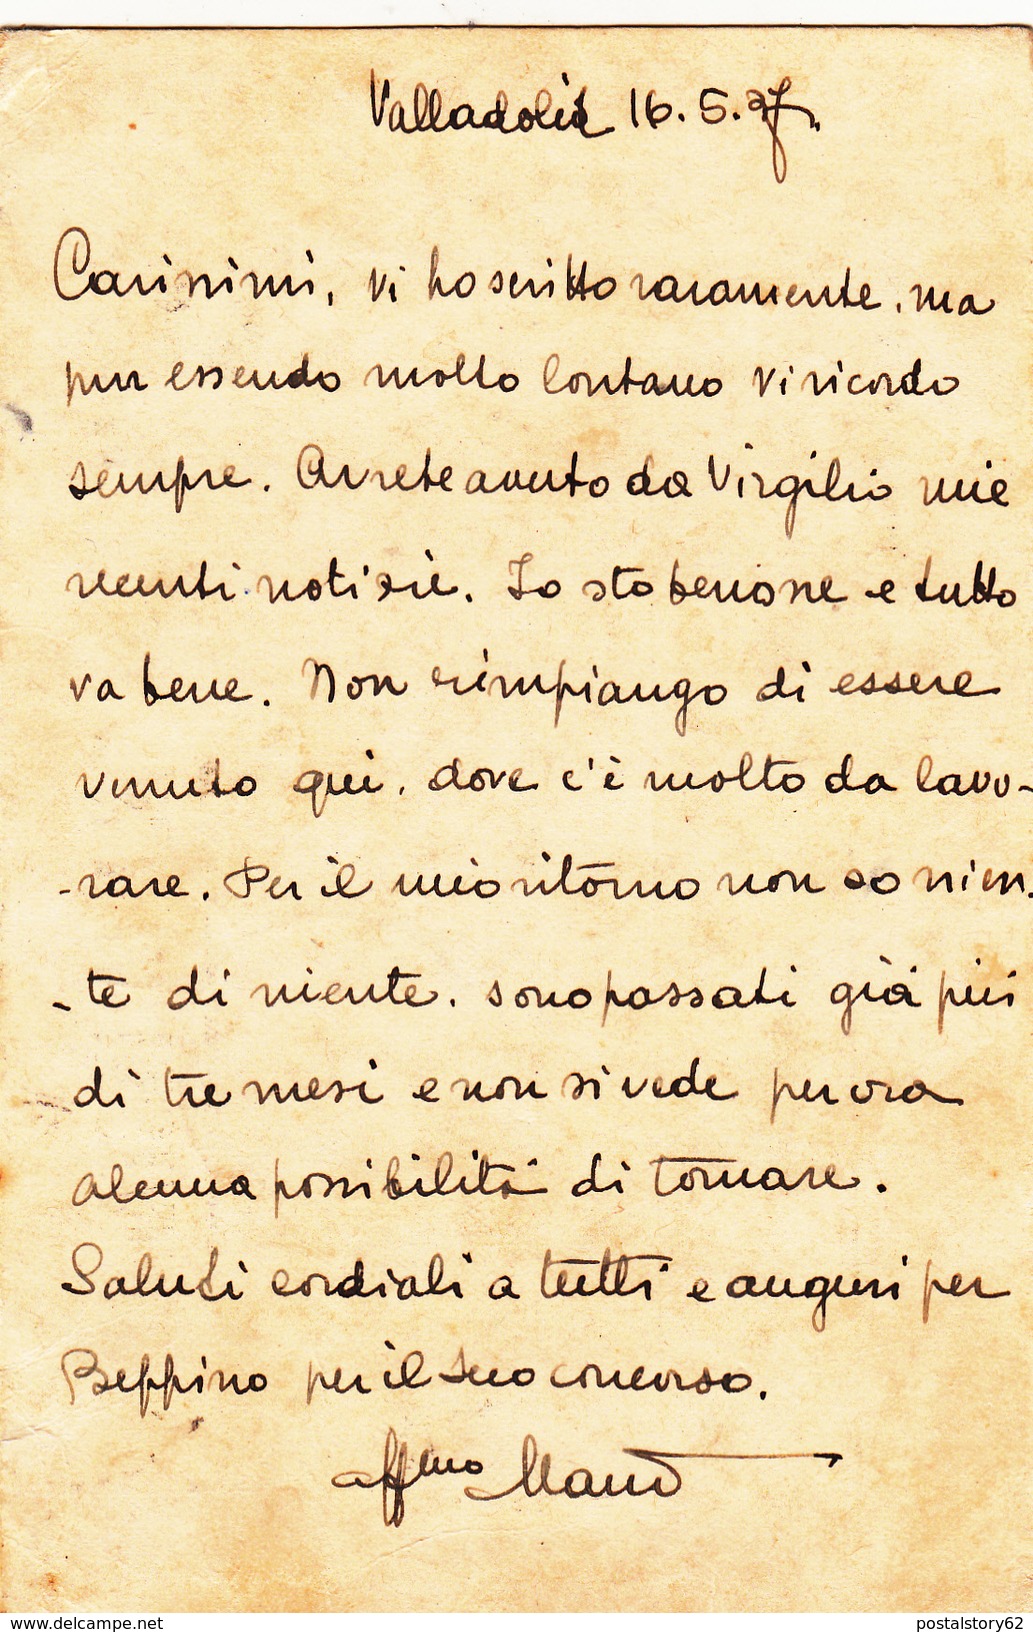 Valladolid 16.5.37.
Carissimi, vi ho scritto raramente, ma
pur essendo molto lontano vi ricordo
sempre. Avrete avuto da Virgilio mie
recenti notizie. Io sto benone e tutto
va bene. Non rimpiango di essere
venuto qui, dove c'è molto da lavo-
-rare. Per il mio ritorno non so nien-
-te di niente. sono passati già più
di tre mesi e non si vede per ora
alcuna possibilità di tornare.
Saluti cordiali a tutti e auguri per
Beppino per il suo concorso.
affmo
delcampe.net
postalstory62